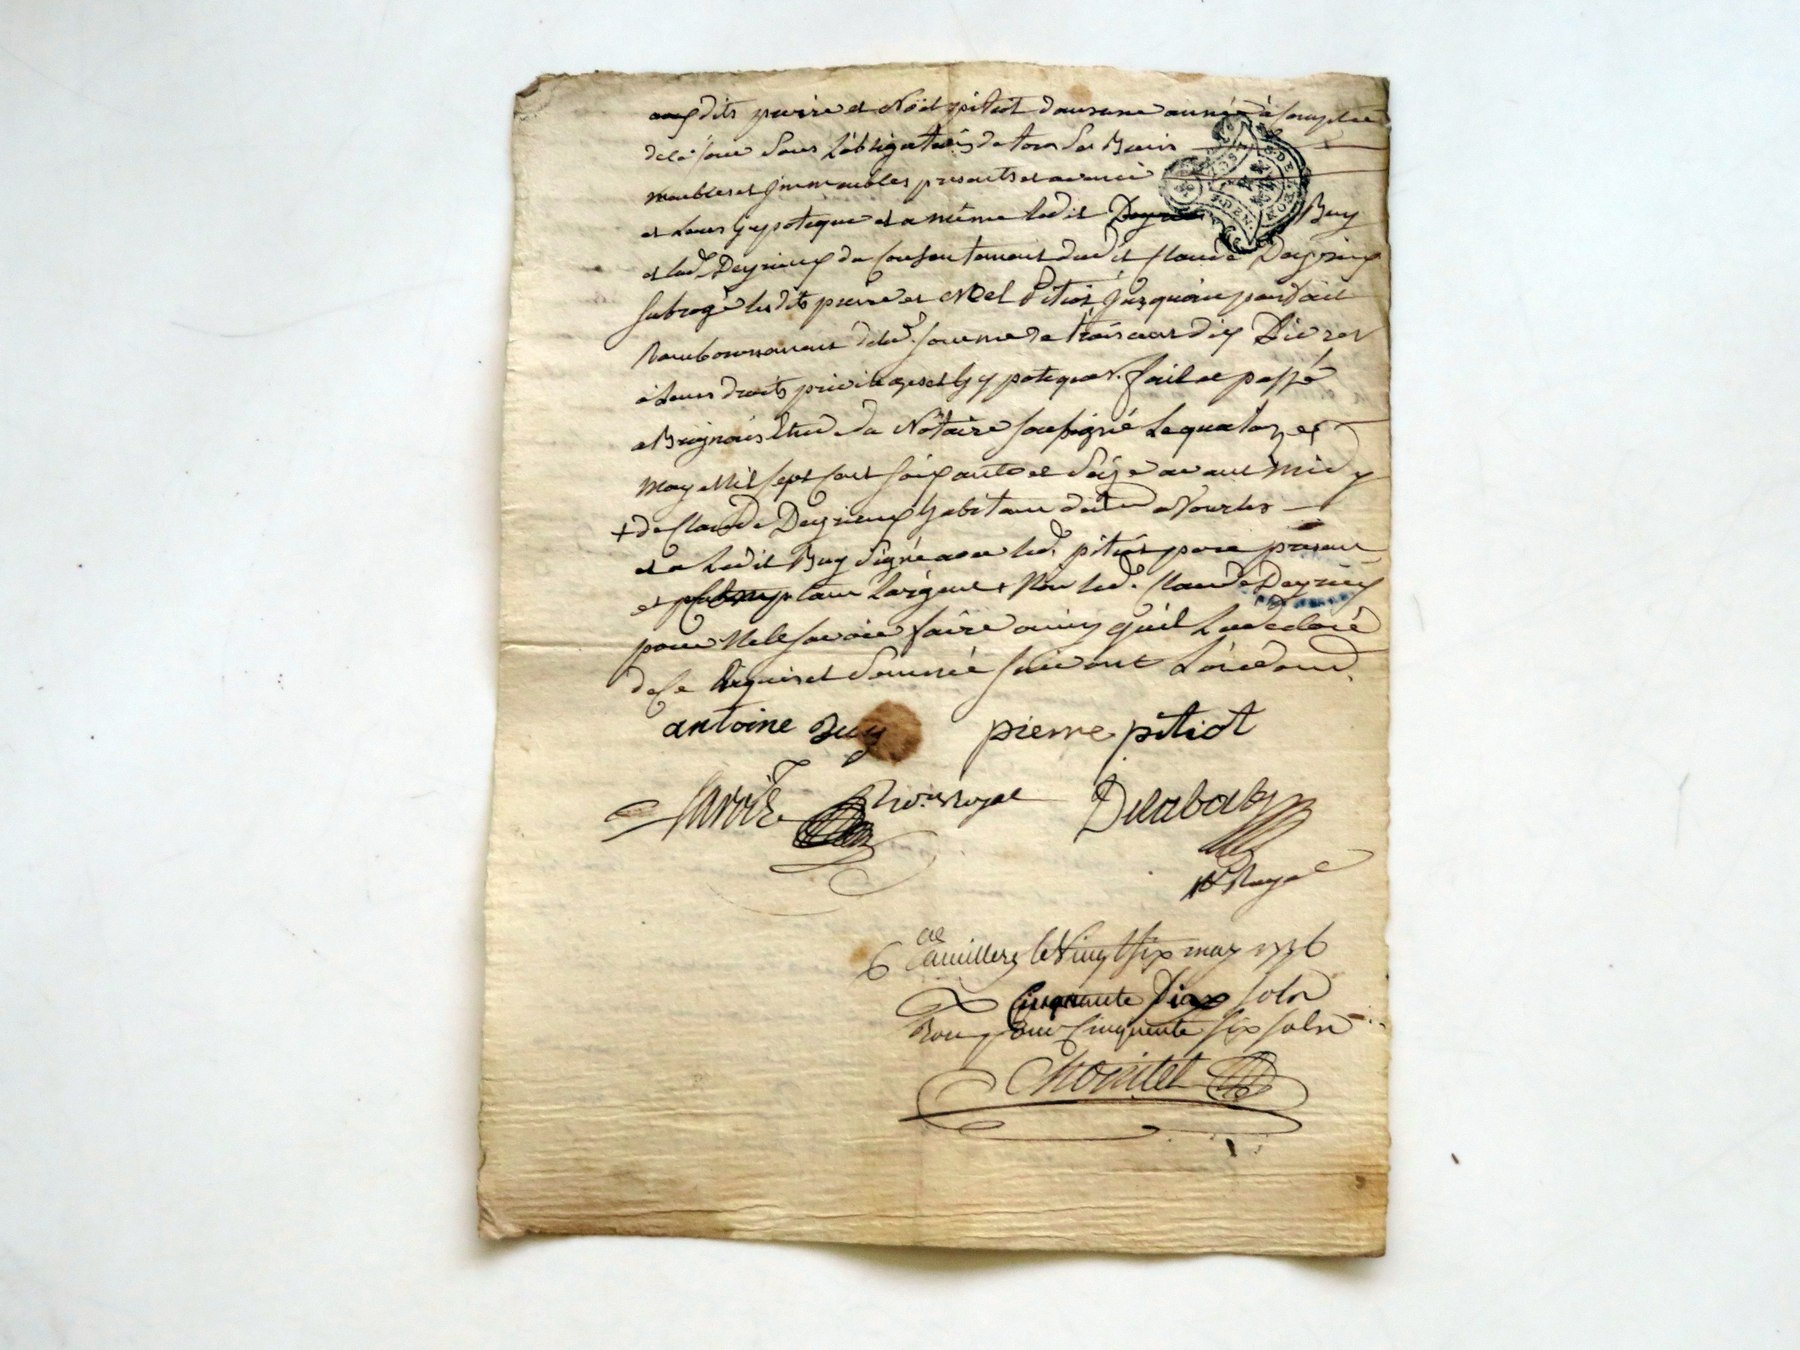 dits pierre et Noel pitiot dans une année à compter
de ce jour sous l'obligation de tous ses Biens
meubles et jmmeubles presents et avenir
et leurs hypoteque et a même ledit Buy
et led. Deyrieux du consentement dudit Claude Deyrieux
subrogé lesdits pierre et Noel Pitiot jusquau parfait
Rembourssement de lad. somme de trois cens dix Livres
à leurs droits privileges et hypoteques. fait et passé
a Brignais Etude du Notaire soussigné Le quatorze
may Mil sept cent soixante et seize avant midy
+ de Claude Deyrieux habitant dudit a Vourles
et a Ledit Buy signé avec led. pitiot pierre présent
et L'argent Non led. Claude Deyrieux
pour Ne le savoir faire ainsy qu'il L'a declaré
de ce Requis et sommé suivant L'ordond.
antoine Buy pierre pitiot
Royal
Nre Royal
le vingt six may 1776
Cinquante Six sols
Bon pour Cinquante six sols